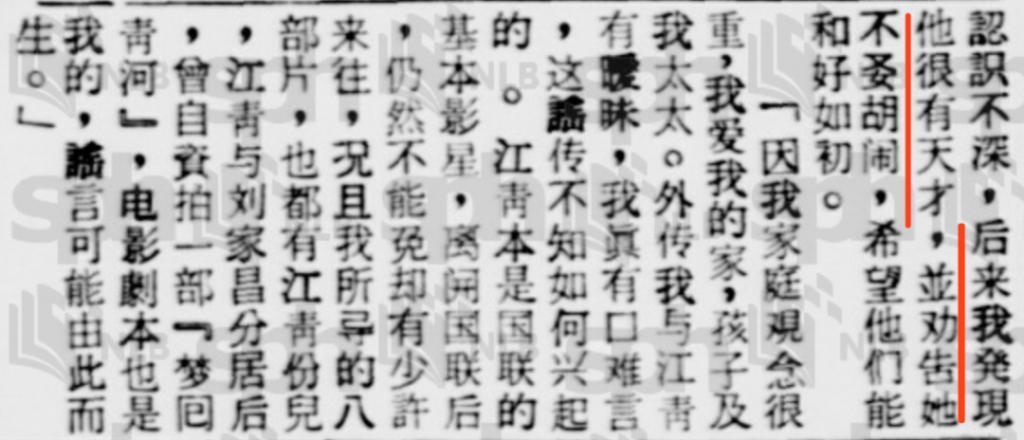 認识不深，后来我発現
他很有天才，並劝告她
不要胡闹，希望他们能
和好如初。
「因我家庭观念很
重，我爱我的家，孩子及
我太太。外传我与江青
有曖昧，我真有口难言
，这謠传不知如何兴起
的。江青本是国联的
基本影星，离开国联后
，仍然不能免却有少許
来往，况且我所寻的八
部片，也都有江青份兒
，江青与刘家昌分居后
，曾自資拍一部『梦回
青河』，电影劇本也是
我的，謠言可能由此而
生。」
NLB
sph